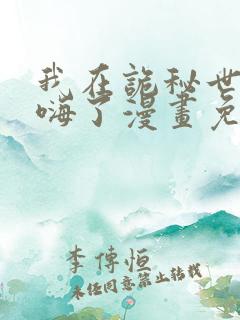 我在詭秘世
嗨了漫畫免
李傳恒
未经同意禁止转载